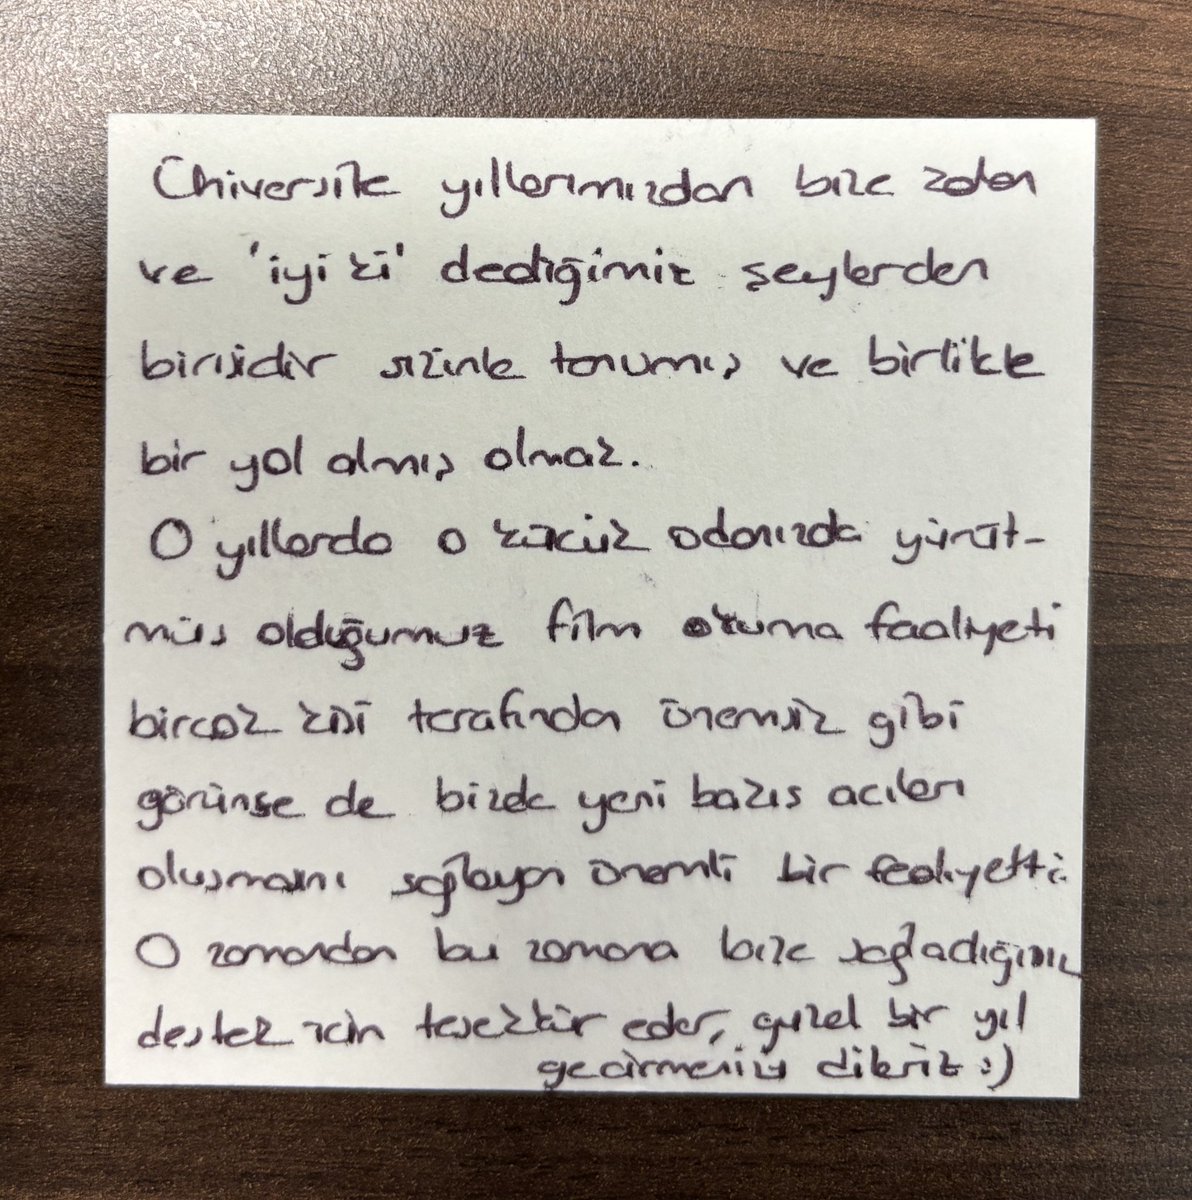 Üniversite yıllarımızdan bize kalan
ve 'iyi ki' dediğimiz şeylerden
birisidir sizinle tanışmış ve birlikte
bir yol almış olmak.
O yıllarda o küçük odanızda yürüt-
müş olduğumuz film okuma faaliyeti
birçok kişi tarafından önemsiz gibi
görünse de bizde yeni bakış acıları
oluşmasını sağlayan önemli bir faaliyetti.
O zamandan bu zamana bize sağladığınız
destek için teşekkür eder, güzel bir yıl
geçirmenizi dileriz :)